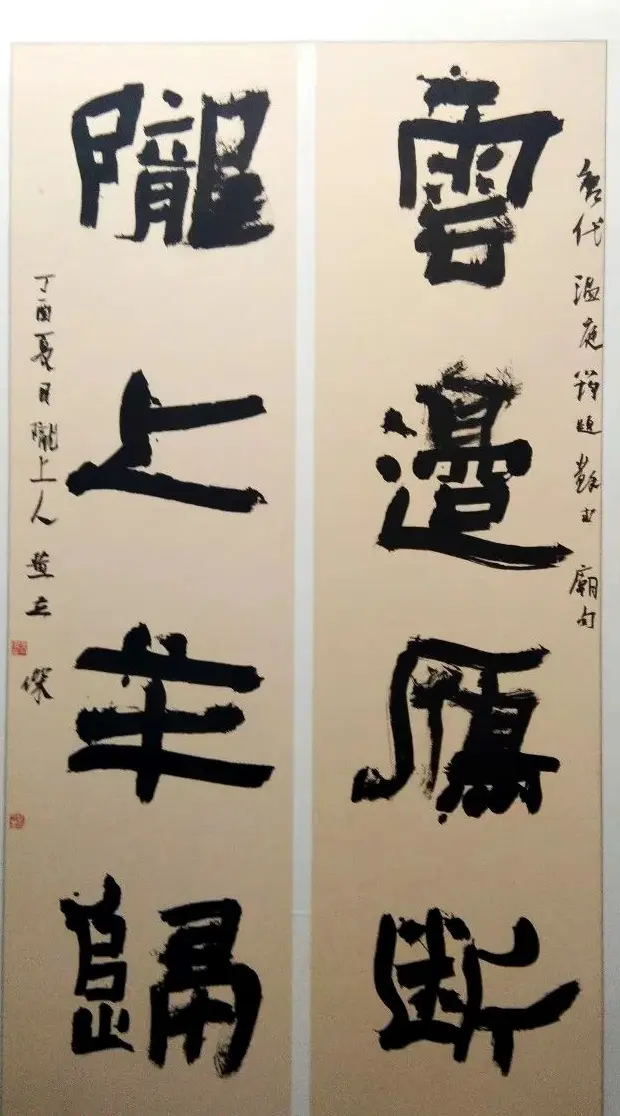 唐代温庭筠題蘇武廟句
雲邊鴈斷
隴上羊歸
丁酉夏月隴上人立傑